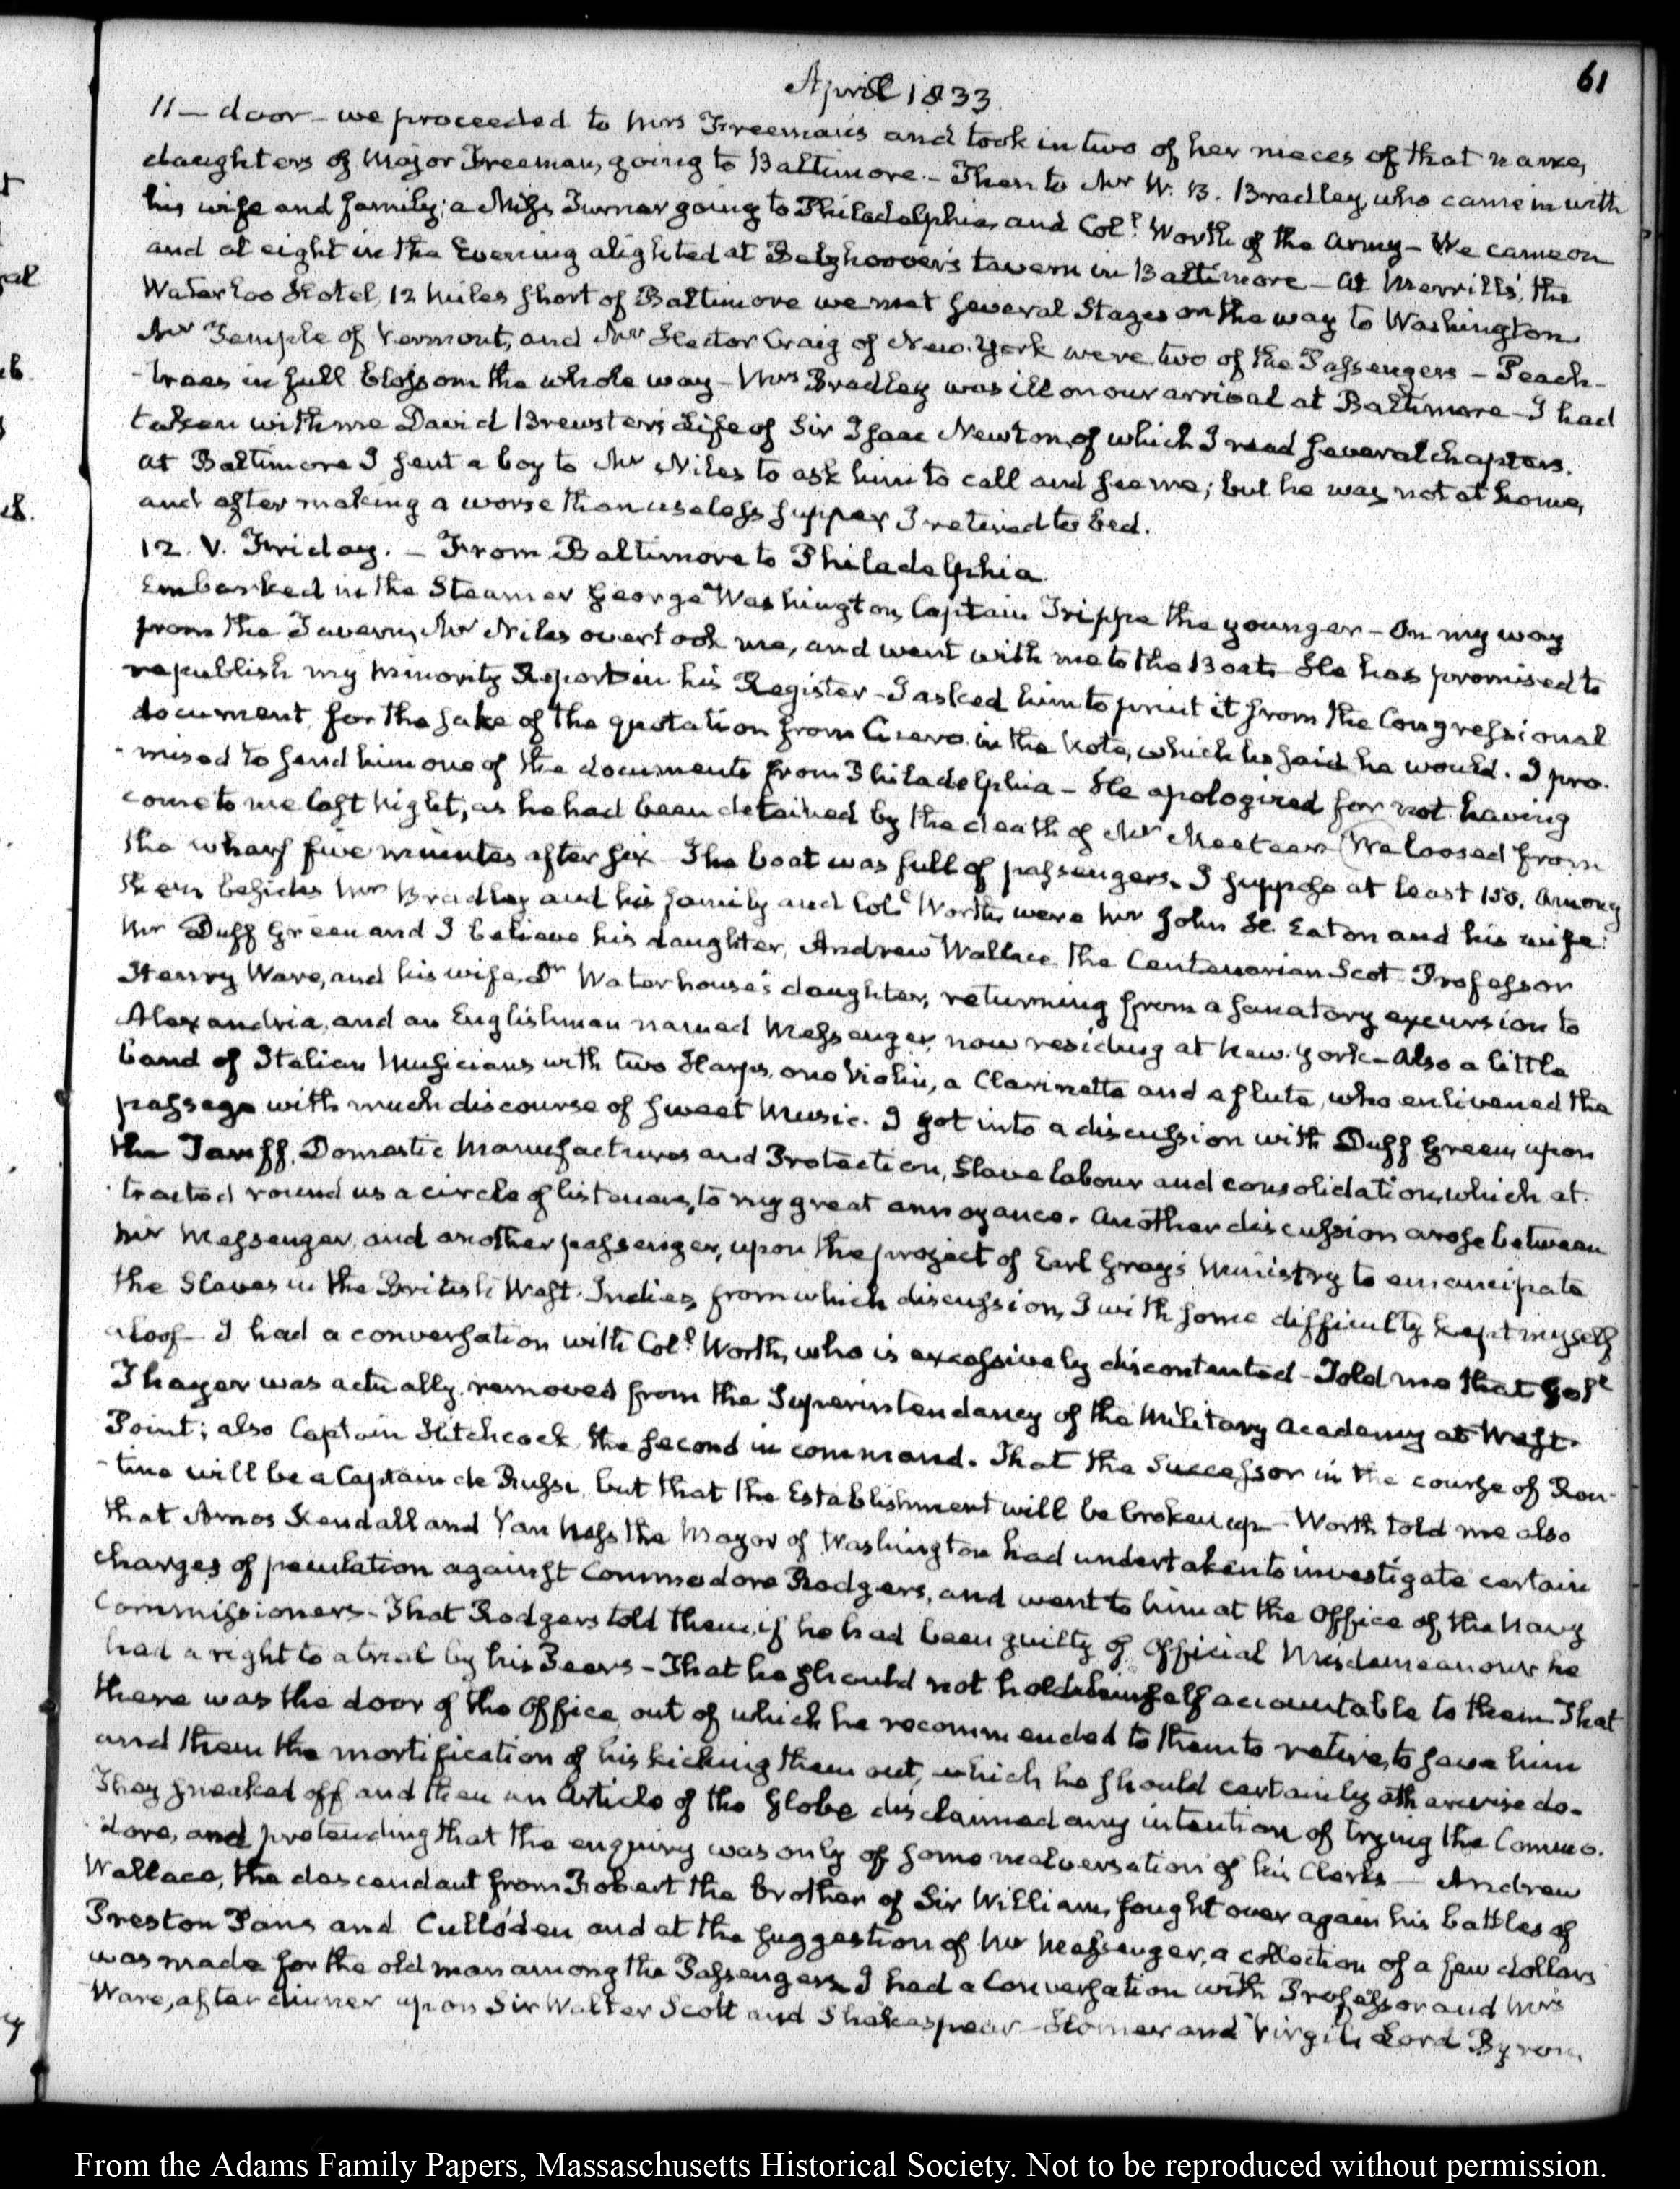 61
April 1833.
11 — door — we proceeded to Mrs Freeman's and took in two of her nieces of that name,
daughters of Major Freeman, going to Baltimore. — Then to Mr W. B. Bradley, who came in with
his wife and family; a Miss Turner going to Philadelphia, and Coll. Worth of the Army — We came on
and at eight in the Evening alighted at Beltzhoover's tavern in Baltimore — At Merrill's, the
Waterloo Hotel, 12 Miles short of Baltimore we met several Stages on the way to Washington.
Mr Temple of Vermont, and Mr Hector Craig of New-York were two of the Passengers — Peach-
-trees in full blossom the whole way — Mrs Bradley was ill on our arrival at Baltimore — I had
taken with me David Brewster's Life of Sir Isaac Newton, of which I read several chapters.
At Baltimore I sent a boy to Mr Niles to ask him to call and see me; but he was not at home,
and after making a worse than useless supper I retired to bed.
12. V. Friday. — From Baltimore to Philadelphia.
Embarked in the Steamer George Washington, Captain Trippe the younger — On my way
from the Tavern, Mr Niles overtook me, and went with me to the Boat. He has promised to
republish my Minority Report in his Register — I asked him to print it from the Congressional
document, for the sake of the quotation from Cicero in the Note, which he said he would. I pro-
-mised to send him one of the documents from Philadelphia — He apologized for not having
come to me last Night, as he had been detained by the death of Mr Meeteer. We loosed from
the wharf five minutes after six. The boat was full of passengers. I suppose at least 150. Among
them besides Mr Bradley and his family and Coll. Worth, were Mr John H. Eaton and his wife:
Mr Duff Green and I believe his daughter, Andrew Wallace the Centenarian Scot. Professor
Henry Ware, and his wife, Dr Waterhouse's daughter, returning from a sanatory excursion to
Alexandria, and an Englishman named Messenger, now residing at New-York — Also a little
band of Italian Musicians with two Harps, one Violin, a Clarinette and a flute, who enlivened the
passage with much discourse of sweet Music. I got into a discussion with Duff Green, upon
the Tariff, Domestic Manufactures and Protection, Slave labour and consolidation, which at-
-tracted round us a circle of listeners, to my great annoyance. Another discussion arose between
Mr Messenger, and another passenger, upon the project of Earl Grey's Ministry to emancipate
the Slaves in the British West-Indies, from which discussion, I with some difficulty kept myself
aloof — I had a conversation with Coll. Worth, who is excessively discontented — Told me that Coll.
Thayer was actually removed from the Superintendancy of the Military Academy at West-
Point; also Captain Hitchcock, the second in command. That the Successor in the course of Rou-
-tine will be a Captain de Russi, but that the Establishment will be broken up — Worth told me also
that Amos Kendall and Van Ness the Mayor of Washington had undertaken to investigate certain
charges of peculation against Commodore Rodgers, and went to him at the Office of the Navy
Commissioners — That Rodgers told them, if he had been guilty of Official Misdemeanour he
had a right to a trial by his Peers — That he should not hold himself accountable to them — That
there was the door of the Office, out of which he recommended to them to retire, to save him
and them the mortification of his kicking them out, which he should certainly otherwise do.
They sneaked off and then an Article of the Globe disclaimed any intention of trying the Commo-
-dore, and pretending that the enquiry was only of some malversation of his Clerks — Andrew
Wallace, the descendant from Robert the brother of Sir William, fought over again his battles of
Preston Pans and Culloden and at the suggestion of Mr Messenger, a collection of a few dollars
was made for the old man among the Passengers. I had a Conversation with Professor and Mrs
Ware, after dinner upon Sir Walter Scott and Shakespear — Homer and Virgil, Lord Byron,
From the Adams Family Papers, Massachusetts Historical Society. Not to be reproduced without permission.